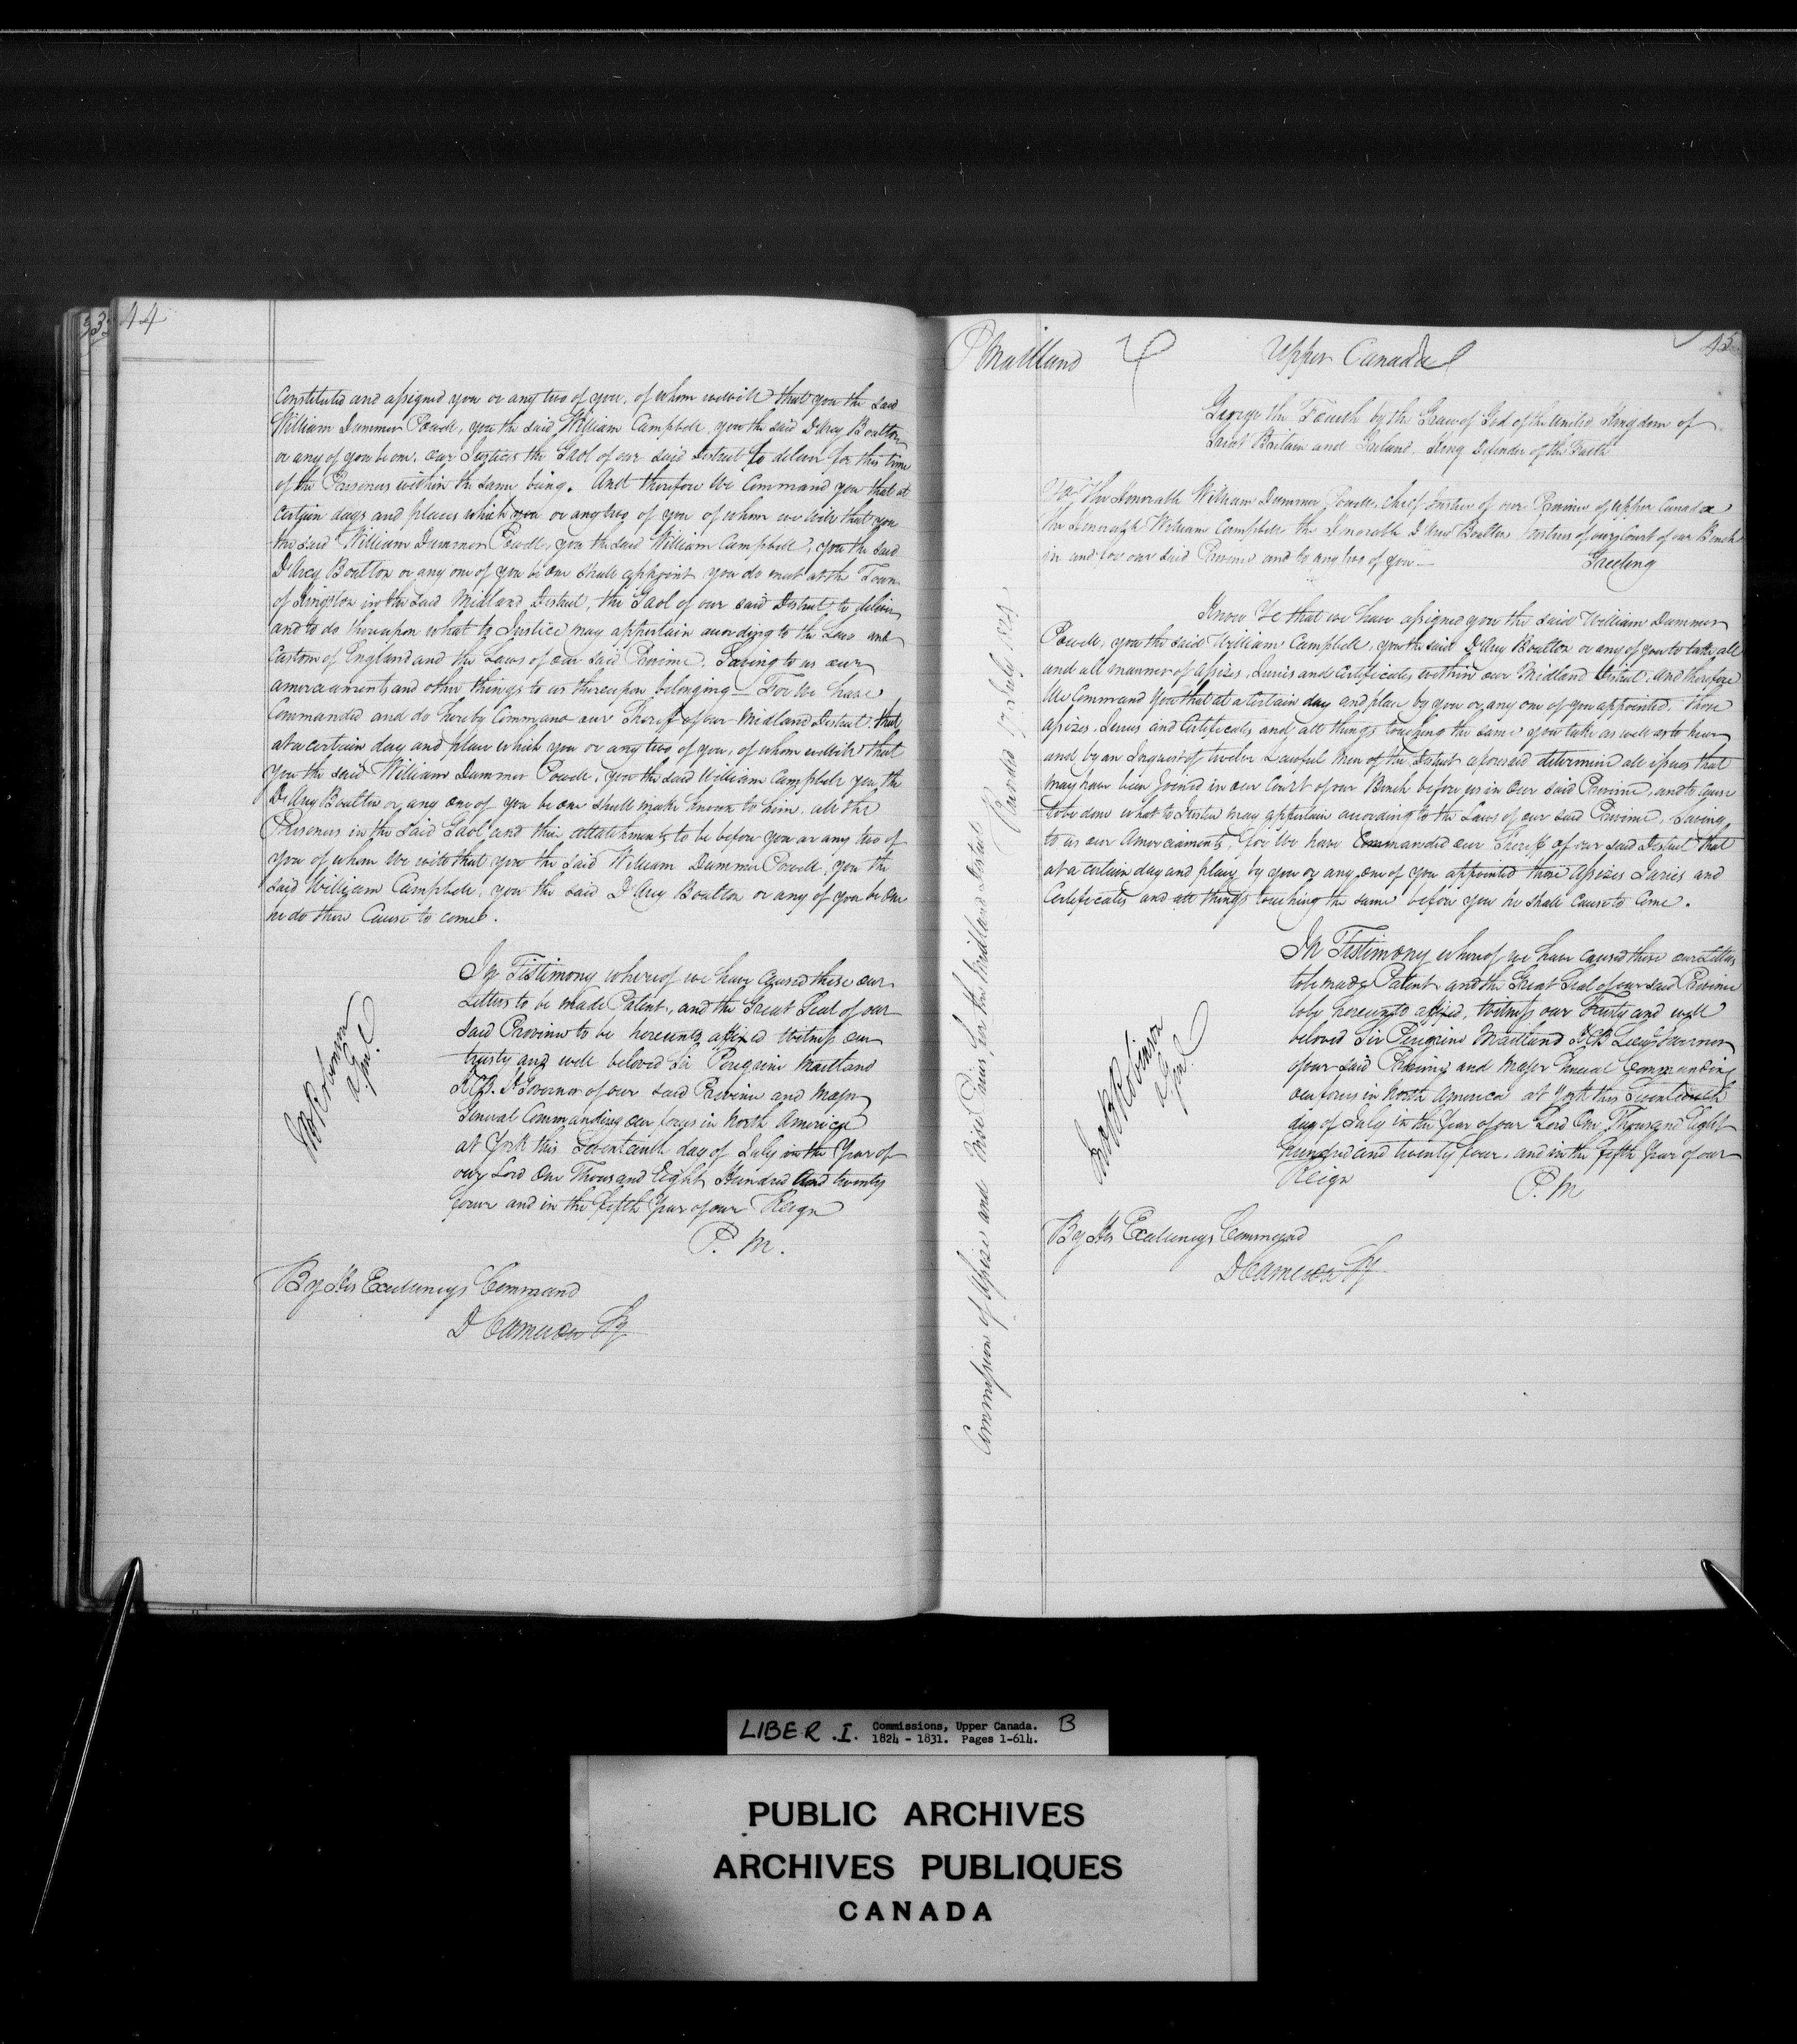 33
44
Constituted and assigned you or any two of you, of whom we will that you the said
William Dummer Powell, you the said William Campbell, you the said D'Arcy Boulton
or any of you be one, our Justices the Gaol of our said District to deliver for this time
of the Prisoners within the same being. And therefore We Command you that at
certain days and places which you or any two of you of whom we will that you
the said William Dummer Powell, you the said William Campbell, you the said
D'Arcy Boulton or any one of you be One shall appoint you do meet at the Town
of Kingston in the said Midland District, the Gaol of our said District to deliver
and to do thereupon what to Justice may appertain according to the Laws and
Custom of England and the Laws of our said Province. Saving to us our
amerciaments and other things to us thereupon belonging — For We have
Commanded and do hereby Command our Sheriff of our Midland District that
at a certain day and place which you or any two of you, of whom we will that
you the said William Dummer Powell, you the said William Campbell you the
D'Arcy Boulton or any one of you be one shall make known to him, all the
Prisoners in the said Gaol and their attatchments to be before you or any two of
you of whom We will that you the said William Dummer Powell, you the
said William Campbell, you the said D'Arcy Boulton or any of you be One
he do there Cause to come.
In Testimony whereof we have caused these our
Letters to be made Patent, and the Great Seal of our
said Province to be hereunto affixed Witness our
trusty and well beloved Sir Peregrine Maitland
K.C.B. Lt Governor of our said Province and Major
General Commanding our forces in North America
at York this Seventeenth day of July in the Year of
our Lord One Thousand Eight Hundred And twenty
four and in the fifth Year of our Reign
P. M.
Jno B Robinson
A. Genl.
By His Excellencys Command
D Cameron Sy
P Maitland
Upper Canada
45
George the Fourth by the Grace of God of the United Kingdom of
Great Britain and Ireland, King Defender of the Faith
To The Honorable William Dummer Powell, Chief Justice of our Province of Upper Canada
the Honorable William Campbell the Honorable D'Arcy Boulton Justices of our Court of our Bench
in and for our said Province and to any two of you —
Greeting
Know Ye that we have assigned you the said William Dummer
Powell, you the said William Campbell, you the said D'Arcy Boulton or any of you to take all
and all manner of Assizes, Juries and Certificates within our Midland District. And therefore
We Command You that at a certain day and place by you or any one of you appointed, those
Assizes, Juries and Certificates and all things touching the same you take as well as to hear
and by an Inquest of twelve Lawful Men of the District aforesaid determine all issues that
may have been joined in our Court of our Bench before us in Our said Province, and to cause
to be done what to Justice may appertain according to the Laws of our said Province, Saving
to us our Amerciaments, for We have Commanded our Sheriff of our said District that
at a certain day and place by you or any one of you appointed those Assizes Juries and
Certificates and all things touching the same before you he shall cause to Come.
In Testimony whereof we have caused these our Letters
to be made Patent and the Great Seal of our said Province
to be hereunto affixed, Witness our Trusty and well
beloved Sir Peregrine Maitland K.C.B Lieut Governor
of our said Province and Major General Commanding
our forces in North America at York this Seventeenth
day of July in the Year of our Lord One Thousand Eight
hundred and twenty four, and in the fifth Year of our
Reign
P. M
Jno B Robinson
A. Genl.
By His Excellencys Command
D Cameron Sy
Commission of Assize and Nisi Prius for the Midland District
Recorded 17 July 1824
LIBER .I. Commissions, Upper Canada. B
1824 - 1831. Pages 1-614.
PUBLIC ARCHIVES
ARCHIVES PUBLIQUES
CANADA